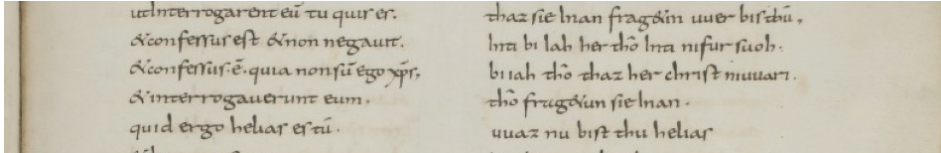 utInterrogarent eū tu quis es.
&confessus est &non negauit.
&confessus ·ē· quia non sū ego xp̄s,
&interrogauerunt eum.
quid ergo helias es tū.
thaz sie Inan frag&in uuer bis thū,
Inti bi iah her thō Inti ni fur suoh.
bi iah thō thaz her christ ni uuari.
thō frag&un sie Inan.
uuaz nu bist thu helias